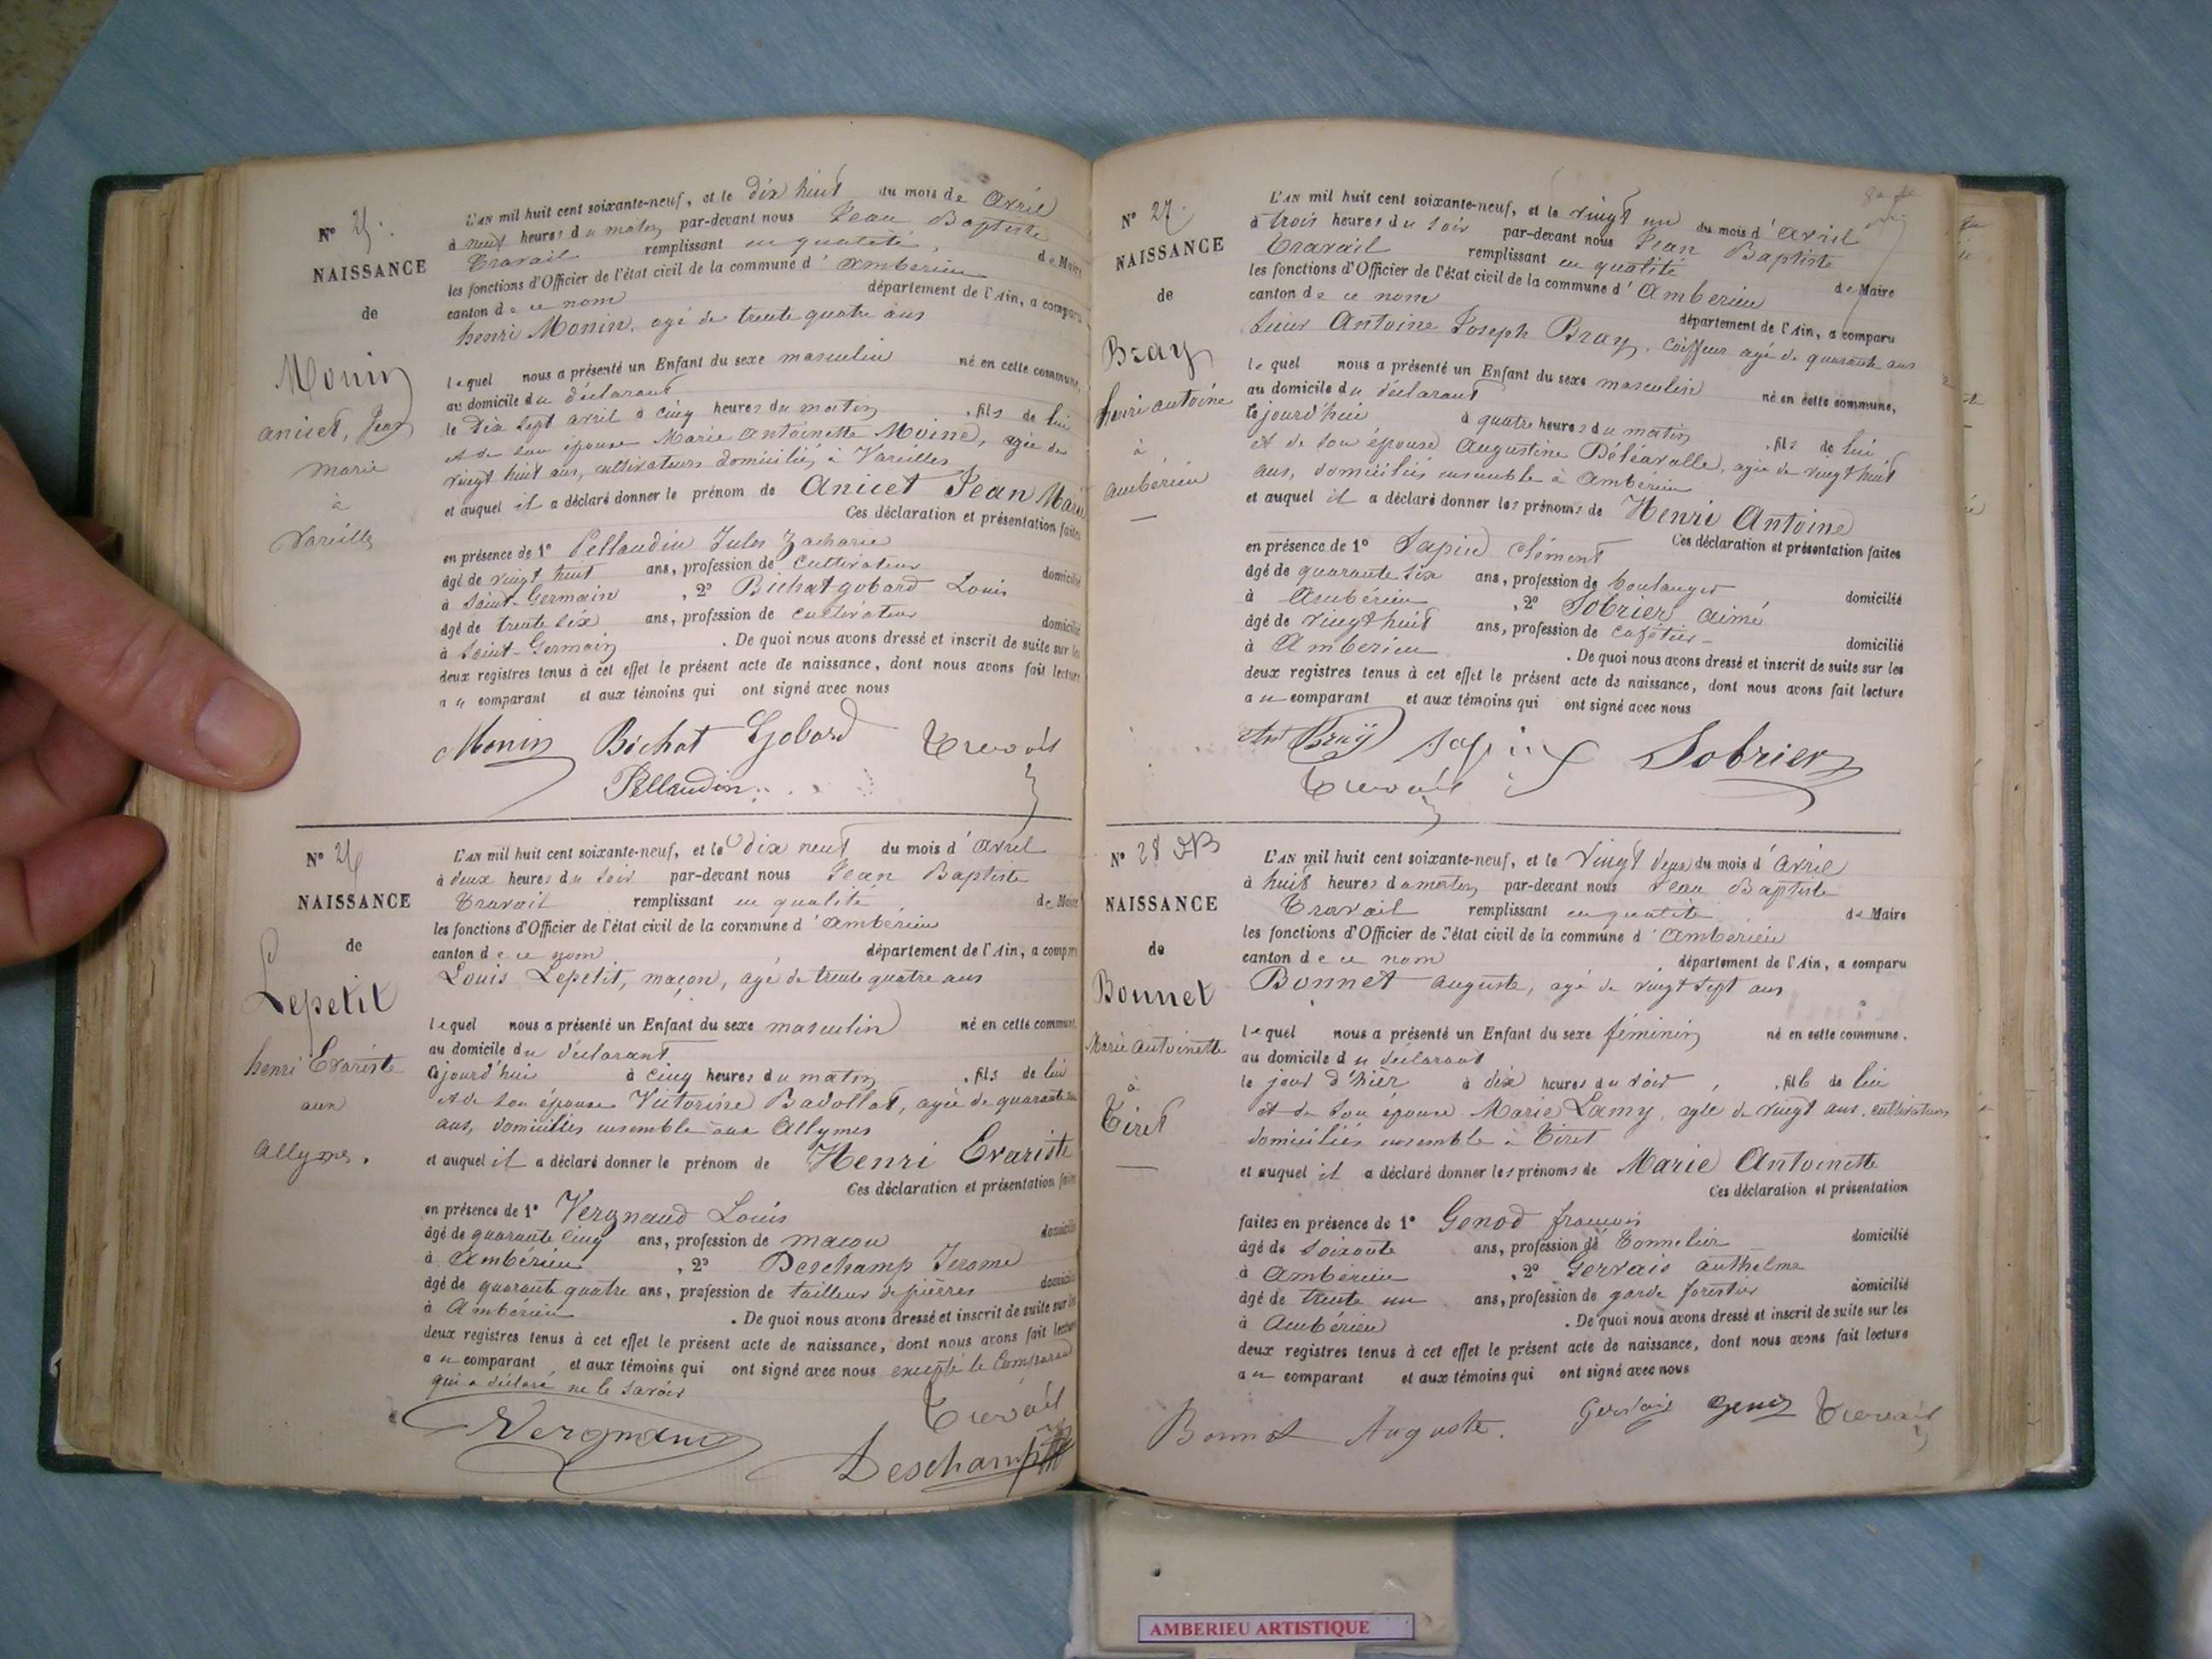 N° 25.
NAISSANCE
de
Monin
anicet, Jean
marie
à
Vareilles
L'AN mil huit cent soixante-neuf, et le dix huit du mois de Avril
à neuf heures du matin par-devant nous Jean Baptiste
Travail remplissant en qualité de Maire
les fonctions d'Officier de l'état civil de la commune d'Ambérieu
canton de ce nom département de l'Ain, a comparu
henri Monin, agé de trente quatre ans
lequel nous a présenté un Enfant du sexe masculin né en cette commune,
au domicile du déclarant
le dix sept avril à cinq heures du matin, fils de lui
et de son épouse Marie Antoinette Moine, agée de
vingt huit ans, cultivateurs domiciliés à Vareilles
et auquel il a déclaré donner le prénom de Anicet Jean Marie
Ces déclaration et présentation faites
en présence de 1° Pellaudin Jules Zacharie
âgé de vingt huit ans, profession de cultivateur domicilié
à Saint-Germain, 2° Bichatgobard Louis
âgé de trente six ans, profession de cultivateur domicilié
à Saint-Germain. De quoi nous avons dressé et inscrit de suite sur les
deux registres tenus à cet effet le présent acte de naissance, dont nous avons fait lecture
au comparant et aux témoins qui ont signé avec nous
Monin Bichat Gobard Travail
Pellaudin
N° 26
NAISSANCE
de
Lepetit
henri Evariste
aux
allymes.
L'AN mil huit cent soixante-neuf, et le dix neuf du mois d'avril
à deux heures du soir par-devant nous Jean Baptiste
Travail remplissant en qualité de Maire
les fonctions d'Officier de l'état civil de la commune d'Ambérieu
canton de ce nom département de l'Ain, a comparu
Louis Lepetit, maçon, agé de trente quatre ans
lequel nous a présenté un Enfant du sexe masculin né en cette commune
au domicile du déclarant
Cejourd'hui à cinq heures du matin, fils de lui
et de son épouse Victorine Badollat, agée de quarante
ans, domiciliés ensemble aux Allymes
et auquel il a déclaré donner le prénom de Henri Evariste
Ces déclaration et présentation faites
en présence de 1° Vergnaud Louis
âgé de quarante cinq ans, profession de maçon domicilié
à Ambérieu, 2° Deschamp Jerome
âgé de quarante quatre ans, profession de tailleur de pierres domicilié
à Ambérieu. De quoi nous avons dressé et inscrit de suite sur les
deux registres tenus à cet effet le présent acte de naissance, dont nous avons fait lecture
au comparant et aux témoins qui ont signé avec nous excepté le Comparant
qui a déclaré ne le savoir
Travail
Vergnaud
Deschamp
N° 27.
NAISSANCE
de
Bray
henri antoine
à
ambérieu
L'AN mil huit cent soixante-neuf, et le vingt un du mois d'avril
à trois heures du soir par-devant nous Jean Baptiste
Travail remplissant en qualité de Maire
les fonctions d'Officier de l'état civil de la commune d'Amberieu
canton de ce nom département de l'Ain, a comparu
sieur Antoine Joseph Bray, coiffeur agé de quarante ans
lequel nous a présenté un Enfant du sexe masculin né en cette commune,
au domicile du déclarant
Cejourd'hui à quatre heures du matin, fils de lui
et de son épouse Augustine Déléavolle, agée de vingt huit
ans, domiciliés ensemble à Amberieu
et auquel il a déclaré donner les prénoms de Henri Antoine
Ces déclaration et présentation faites
en présence de 1° Sapin Clément
âgé de quarante six ans, profession de boulanger domicilié
à Ambérieu, 2° Sobrier aimé
âgé de vingt huit ans, profession de cafetier domicilié
à Amberieu. De quoi nous avons dressé et inscrit de suite sur les
deux registres tenus à cet effet le présent acte de naissance, dont nous avons fait lecture
au comparant et aux témoins qui ont signé avec nous
Ant Bray Sapin Sobrier
Travail
N° 28
NAISSANCE
de
Bonnet
Marie Antoinette
à
Tiret
L'AN mil huit cent soixante-neuf, et le vingt deux du mois d'avril
à huit heures du matin par-devant nous Jean Baptiste
Travail remplissant en qualité de Maire
les fonctions d'Officier de l'état civil de la commune d'Ambérieu
canton de ce nom, département de l'Ain, a comparu
Bonnet auguste, agé de vingt sept ans
lequel nous a présenté un Enfant du sexe féminin né en cette commune.
au domicile du déclarant
le jour d'hier à dix heures du soir, fille de lui
et de son épouse Marie Lamy, agée de vingt ans, cultivateurs
domiciliés ensemble à Tiret
et auquel il a déclaré donner les prénoms de Marie Antoinette
Ces déclaration et présentation
faites en présence de 1° Genod françois
âgé de soixante ans, profession de tonnelier domicilié
à Ambérieu, 2° Gervais anthelme
âgé de trente un ans, profession de garde forestier domicilié
à Ambérieu. De quoi nous avons dressé et inscrit de suite sur les
deux registres tenus à cet effet le présent acte de naissance, dont nous avons fait lecture
au comparant et aux témoins qui ont signé avec nous
Bonnet Auguste. Gervais Genod Travail
AMBERIEU ARTISTIQUE